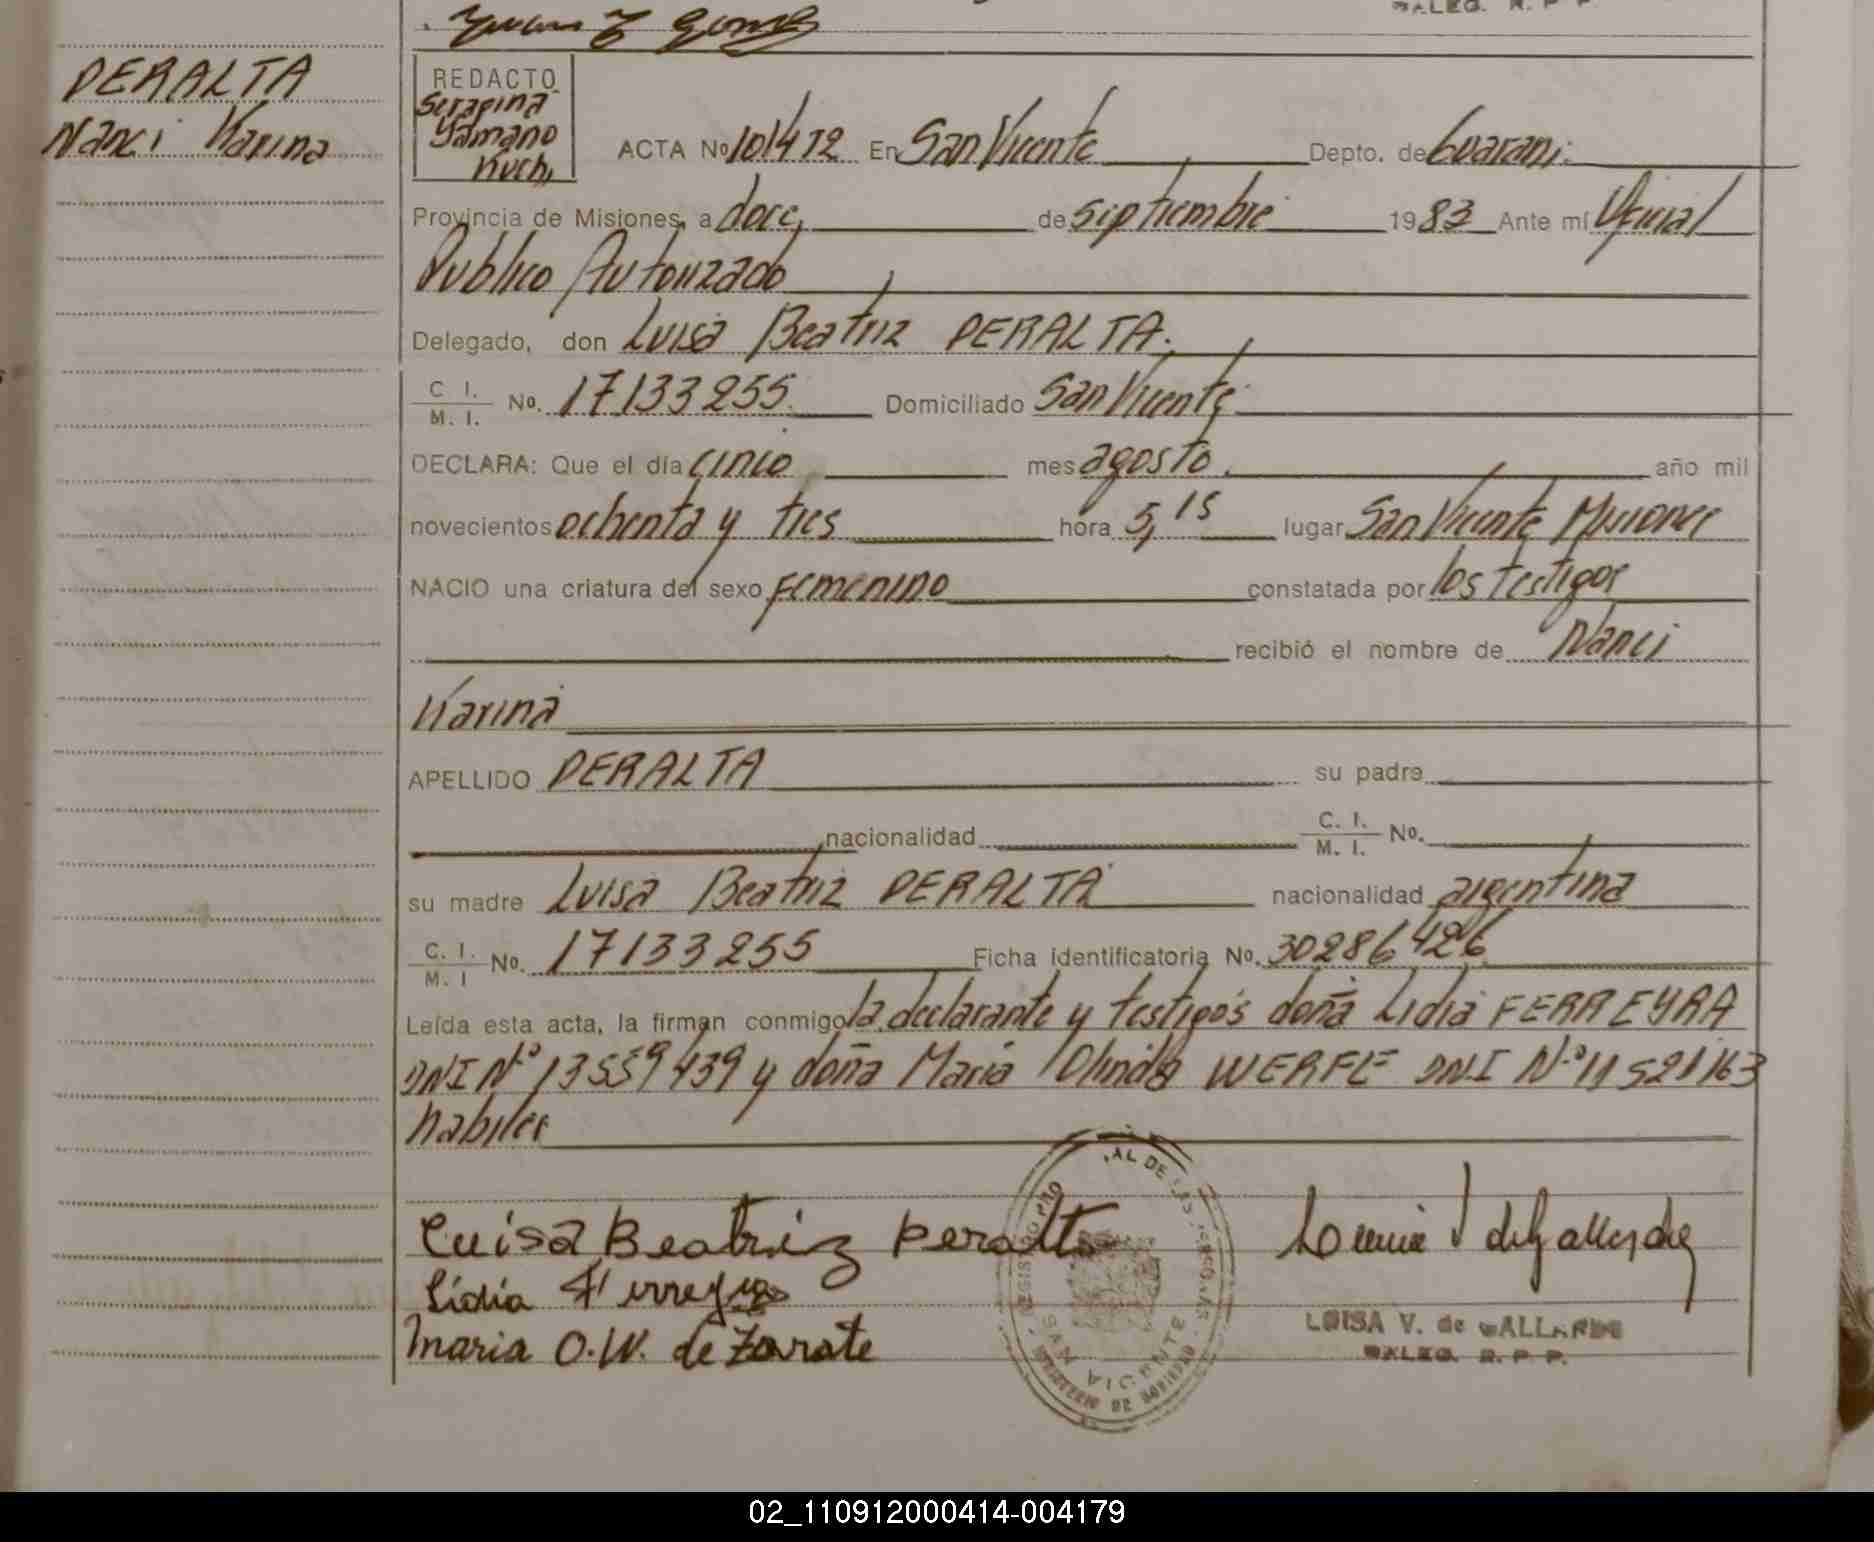 DALEG. R. P P
PERALTA
Nanci Karina
REDACTO
Serapina
Yamano
Kuchi
ACTA No 101472 En San Vicente Depto. de Guarani.
Provincia de Misiones, a doce, de septiembre 1983 Ante mí Oficial
Publico Autorizado
Delegado, don Luisa Beatriz PERALTA.
C. I. / M. I. No. 17133255. Domiciliado San Vicente
DECLARA: Que el día cinco mes agosto. año mil
novecientos ochenta y tres hora 5,15 lugar San Vicente Misiones
NACIO una criatura del sexo femenino constatada por los testigos
recibió el nombre de Nanci
Karina
APELLIDO PERALTA su padre
nacionalidad C. I. / M. I. No.
su madre Luisa Beatriz PERALTA nacionalidad argentina
C. I. / M. I No. 17133255 Ficha identificatoria No. 30286426
Leída esta acta, la firman conmigo la declarante y testigos doña Lidia FERREYRA
DNI Nº 13559439 y doña Maria Olinda WERFLE DNI Nº 11521163
habiles
Luisa Beatriz Peralta
Lidia Ferreyra
Maria O.W. de Zarate
SAN VICENTE
LUISA V. de GALLARDO
DALEG. R. P. P.
02_110912000414-004179